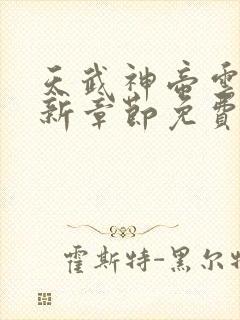 天武神帝雲
新章節免費
霍斯特-黑尔特